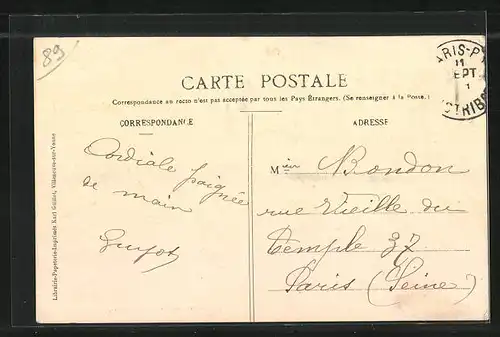 89
CARTE POSTALE
Correspondance au recto n'est pas acceptée par tous les Pays Étrangers. (Se renseigner à la Poste.)
CORRESPONDANCE
Cordiale poignée
de main
Guyot
ADRESSE
Mieur Bondon
rue Vieille du
Temple 37
Paris (Seine)
PARIS-P
11
SEPT
1
DISTRIB
Librairie-Papeterie-Imprimés Karl Guillot, Villeneuve-sur-Yonne